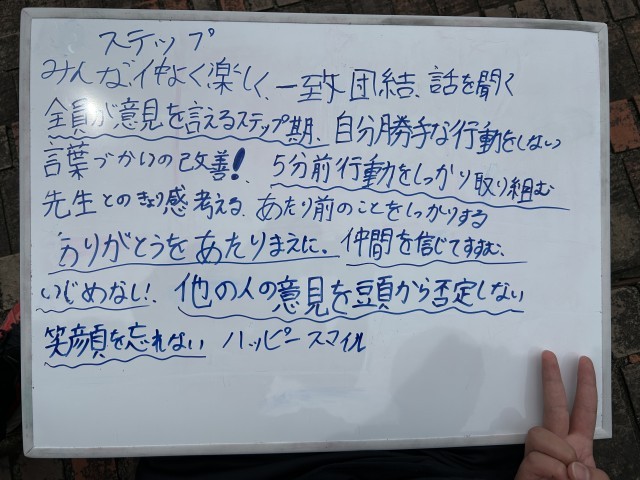 ステップ
みんな仲よく楽しく、一致団結、話を聞く
全員が意見を言えるステップ期、自分勝手な行動をしない
言葉づかいの改善!、5分前行動をしっかり取り組む
先生とのきょり感考える、あたり前のことをしっかりする
ありがとうをあたりまえに、仲間を信じてすすむ、
いじめなし!、他の人の意見を豆頭から否定しない
笑顔を忘れない ハッピースマイル